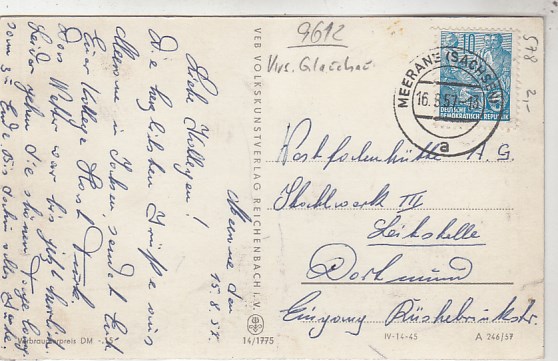 Meerane den
15.8.57.
Liebe Kollegen!
Die herzlichsten Grüße aus
Meerane in Sachsen, sendet Euch
Euer Kollege Horst
Das Wetter war bis jetzt herrlich.
Leider gehen die schönen Tage bald
zum zu Ende. Bis dahin alles Gute.
Verbraucherpreis DM -.15
VEB VOLKSKUNSTVERLAG REICHENBACH i.V.
14/1775
9612
Krs. Glauchau
MEERANE (SACHSEN)
16.8.57
a
10
DEUTSCHE
DEMOKRATISCHE REPUBLIK
578
2,-
Westfalenhütte A.G.
Stahlwerk III
Leitstelle
Dortmund
Eingang Rüschebrinkstr.
IV-14-45
A 246/57